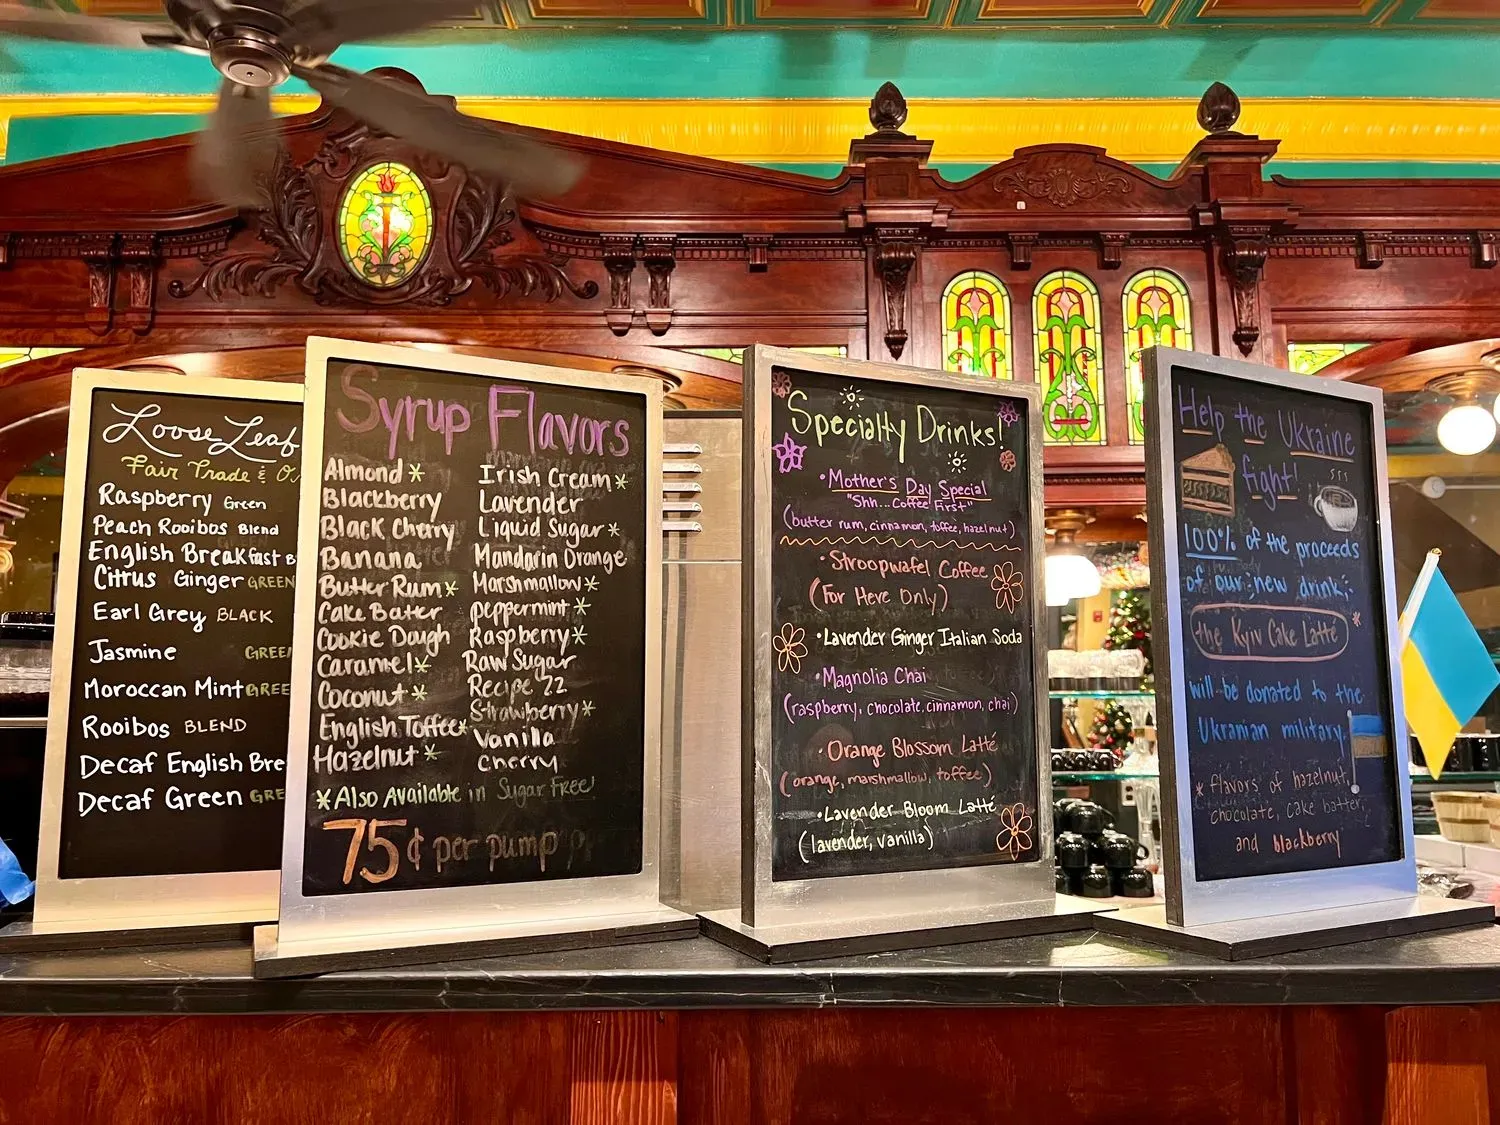 Loose Leaf
Fair Trade &
Raspberry Green
Peach Rooibos Blend
English Breakfast
Citrus Ginger GREEN
Earl Grey BLACK
Jasmine
Moroccan Mint
Rooibos BLEND
Decaf English
Decaf Green
Syrup Flavors
Almond *
Blackberry
Black Cherry
Banana
Butter Rum *
Cake Batter
Cookie Dough
Caramel *
Coconut *
English Toffee *
Hazelnut *
Irish Cream *
Lavender
Liquid Sugar *
Mandarin Orange
Marshmallow *
peppermint *
Raspberry *
Raw Sugar
Recipe 22
Strawberry *
Vanilla
Cherry
*Also Available in Sugar Free!
75¢ per pump
Specialty Drinks!
• Mother's Day Special
"Shh...Coffee First"
(butter rum, cinnamon, toffee, hazelnut)
• Stroopwafel Coffee
(For Here Only)
• Lavender Ginger Italian Soda
• Magnolia Chai
(raspberry, chocolate, cinnamon, chai)
• Orange Blossom Latté
(orange, marshmallow, toffee)
• Lavender Bloom Latté
(lavender, vanilla)
Help the Ukraine
fight!
100% of the proceeds
of our new drink,
the Kyiv Cake Latté *
will be donated to the
Ukranian military
* flavors of hazelnut,
chocolate, cake batter,
and blackberry